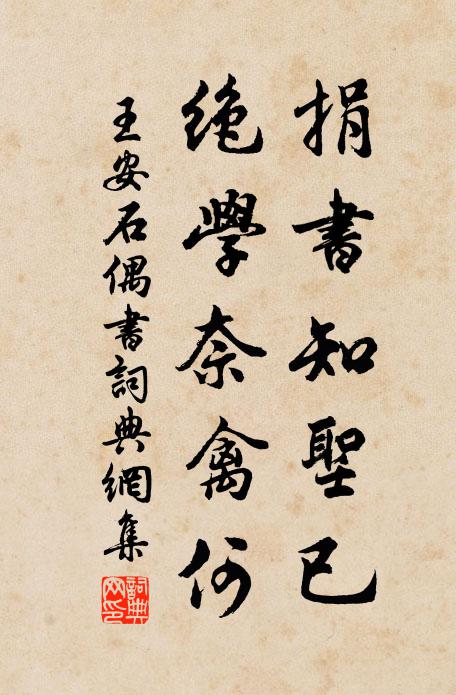 捐書知聖已
絶學奈禽何
王安石偶書詞典網集
詞典网印